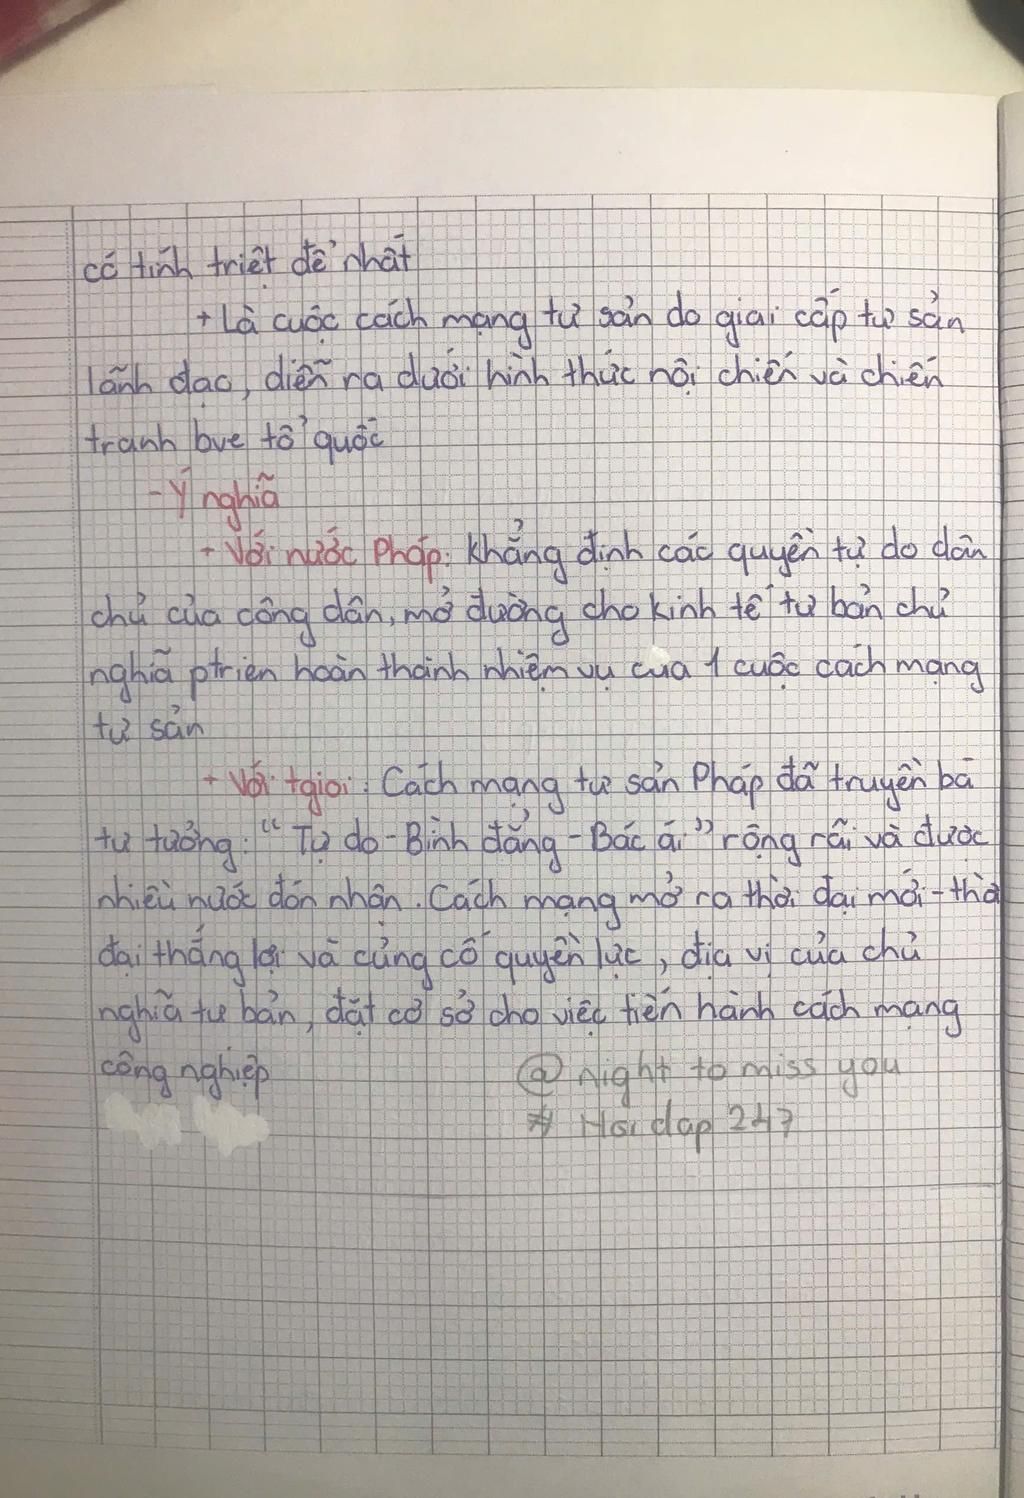 có tính triệt để nhất
+ Là cuộc cách mạng tư sản do giai cấp tư sản
lãnh đạo, diễn ra dưới hình thức nội chiến và chiến
tranh bve tổ quốc
- Ý nghĩa
+ Với nước Pháp: Khẳng định các quyền tự do dân
chủ của công dân, mở đường cho kinh tế tư bản chủ
nghĩa ptriên hoàn thành nhiệm vụ của 1 cuộc cách mạng
tư sản
+ Với tgioi: Cách mạng tư sản Pháp đã truyền bá
tư tưởng: "Tự do - Bình đẳng - Bác ái" rộng rãi và được
nhiều nước đón nhận. Cách mạng mở ra thời đại mới - thờ
đại thắng lợi và củng cố quyền lực, địa vị của chủ
nghĩa tư bản, đặt cơ sở cho việc tiến hành cách mạng
công nghiệp
@ night to miss you
# Hoidap 247